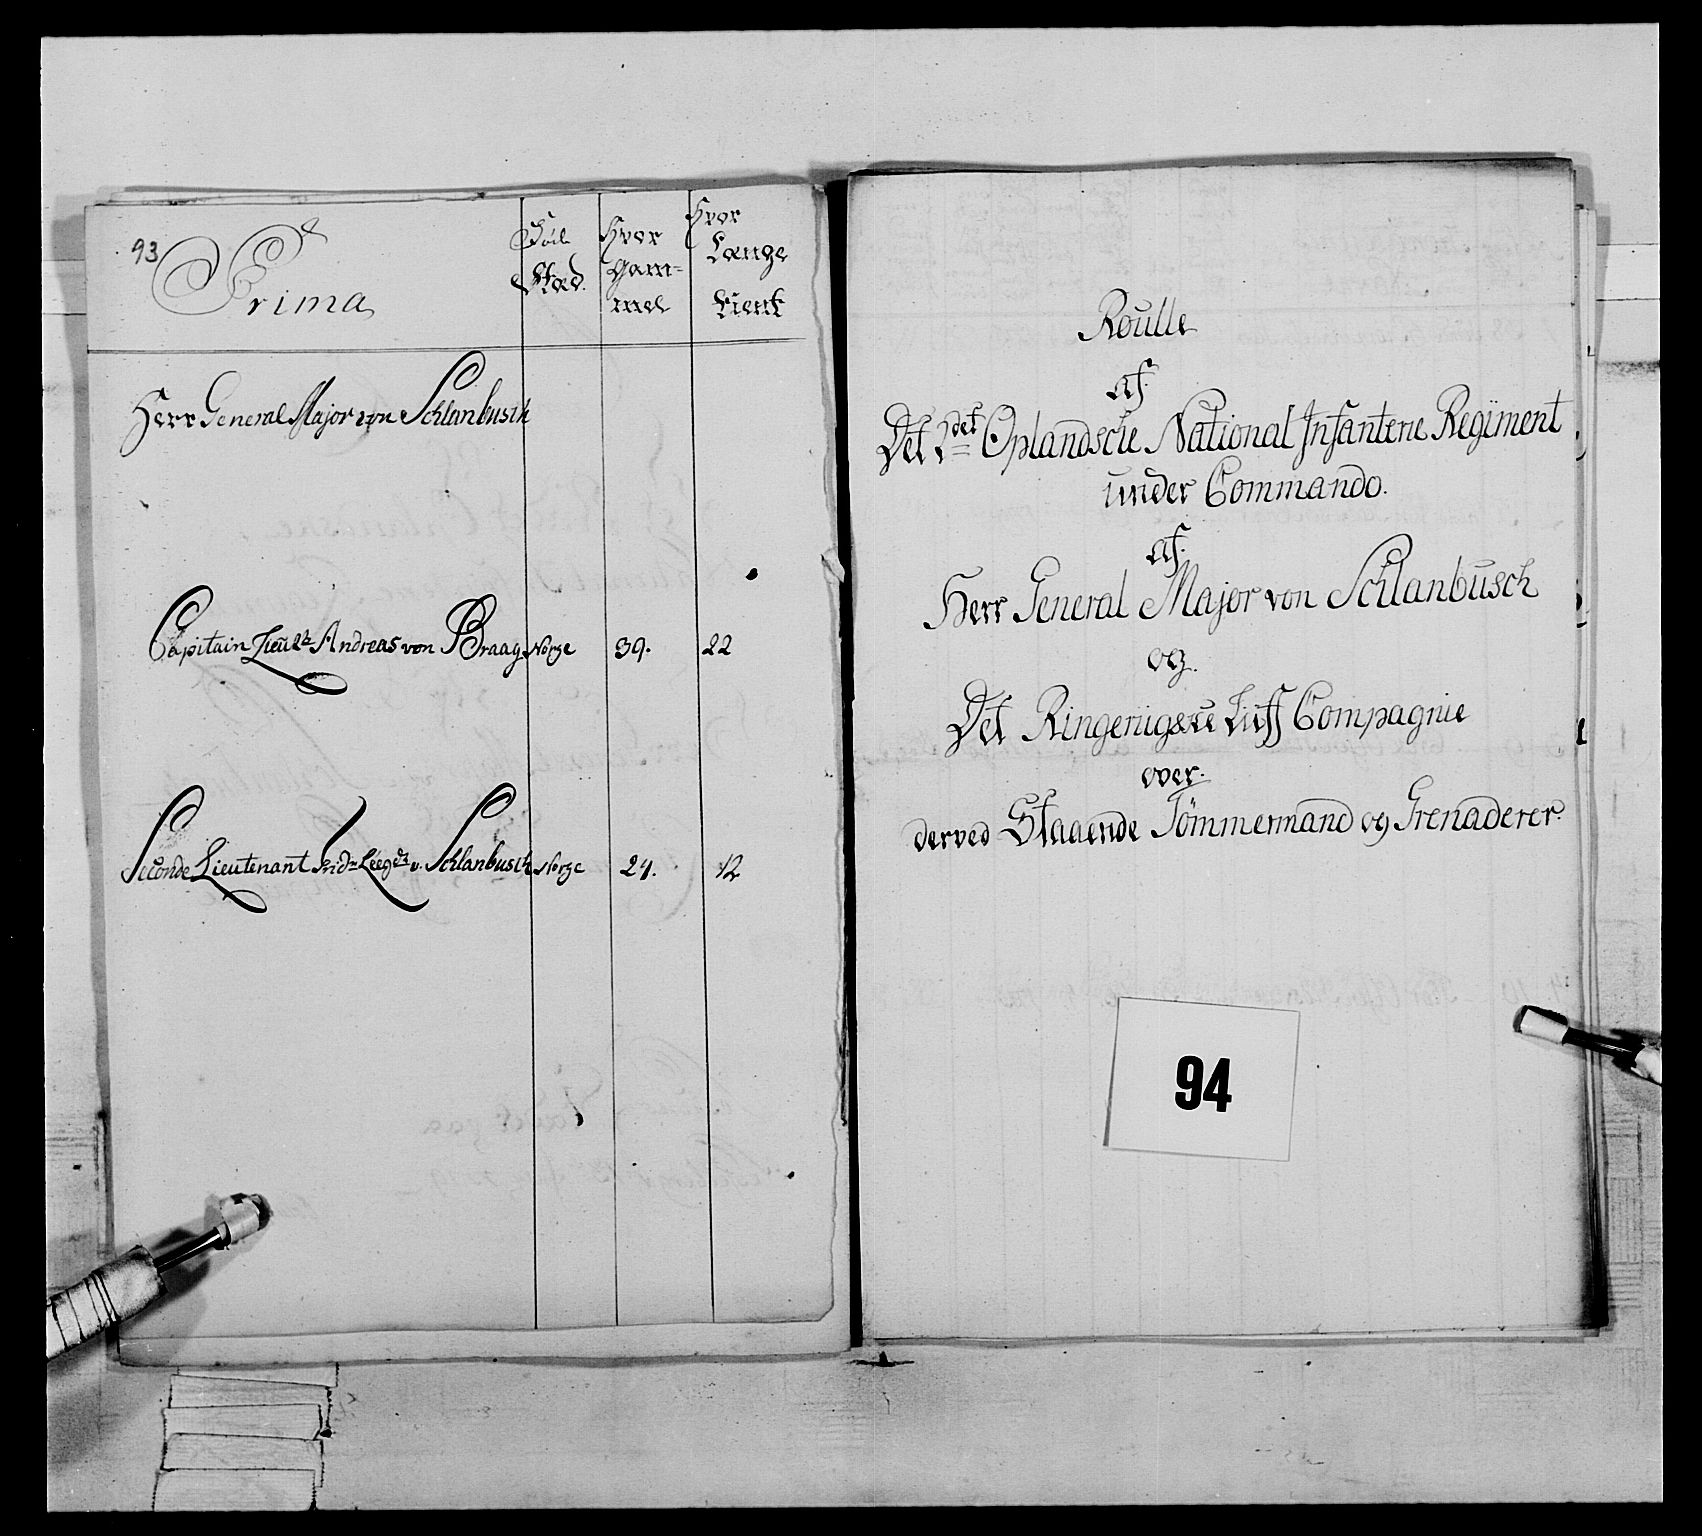 93
Prima
Föde
Stæd.
Hvor
gam-
mel
Hvor
Længe
Tient
Herr General Major von Schlanbusch
Capitain Lieut: Andreas von Braag Norge 39. 22
Seconde Lieutenant v. Schlanbusch Norge 24. 12
Roulle
af.
Det 2det Oplandsche National Infanterie Regiment
under Commando.
af.
Herr General Major von Schlanbusch
og.
Det Ringerigske Liff Compagnie
over.
derved Staaende Tömmermænd og Grenaderer.
94